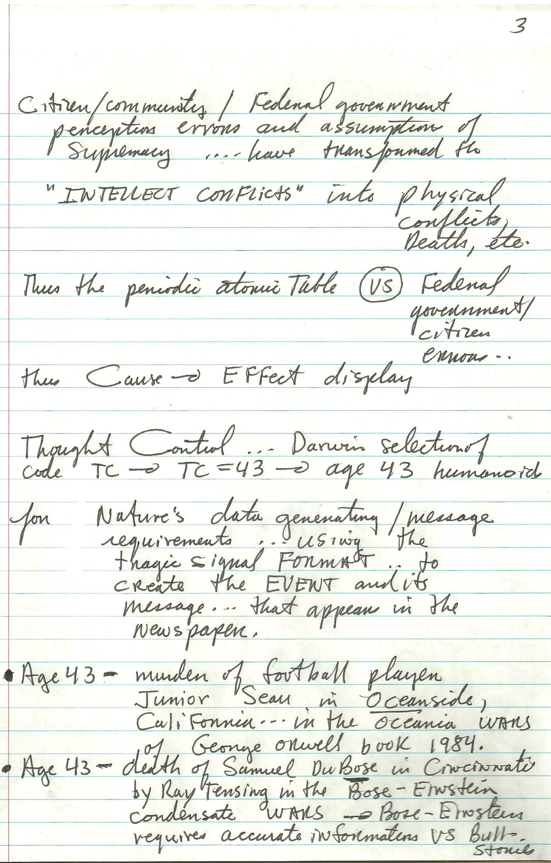 3
Citizen/community / Federal government
perception errors and assumption of
Supremacy .... have transformed the
"INTELLECT CONFLICTS" into physical
conflicts,
Deaths, etc.
Thus the periodic atomic Table VS Federal
government/
citizen
errors..
thus Cause → EFFect display
Thought Control ... Darwin selection of
code TC → TC = 43 → age 43 humanoid
for Nature's data generating/message
requirements ... using the
tragic signal FORMAT .. to
create the EVENT and its
message ... that appears in the
newspaper.
• Age 43 - murder of football player
Junior Seau in Oceanside,
California ... in the oceania WARS
of George orwell book 1984.
• Age 43 - death of Samuel DuBose in Cincinnati
by Ray Tensing in the Bose-Einstein
condensate WARS → Bose-Einstein
requires accurate informations VS Bull-
stories